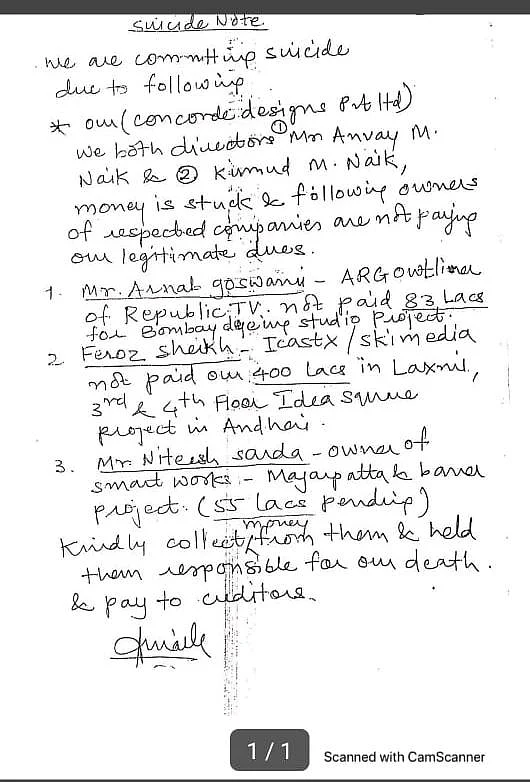 Suicide Note
we are committing suicide
due to following
* our (concorde designs Pvt ltd)
we both directors ① Mr Anvay M.
Naik & ② Kumud M. Naik,
money is stuck & following owners
of respected companies are not paying
our legitimate dues.
1. Mr. Arnab goswami - ARG outlier
of Republic TV. not paid 83 Lacs
for Bombay dyeing studio project.
2 Feroz sheikh - Icastx / skimedia
not paid our 400 lacs in Laxmi,
3rd & 4th Floor Idea square
project in Andheri.
3. Mr. Niteish sarda - owner of
smart works - Magarpatta & baner
project. (55 lacs pending)
money
Kindly collect from them & held
them responsible for our death.
& pay to creditors.
1 / 1
Scanned with CamScanner